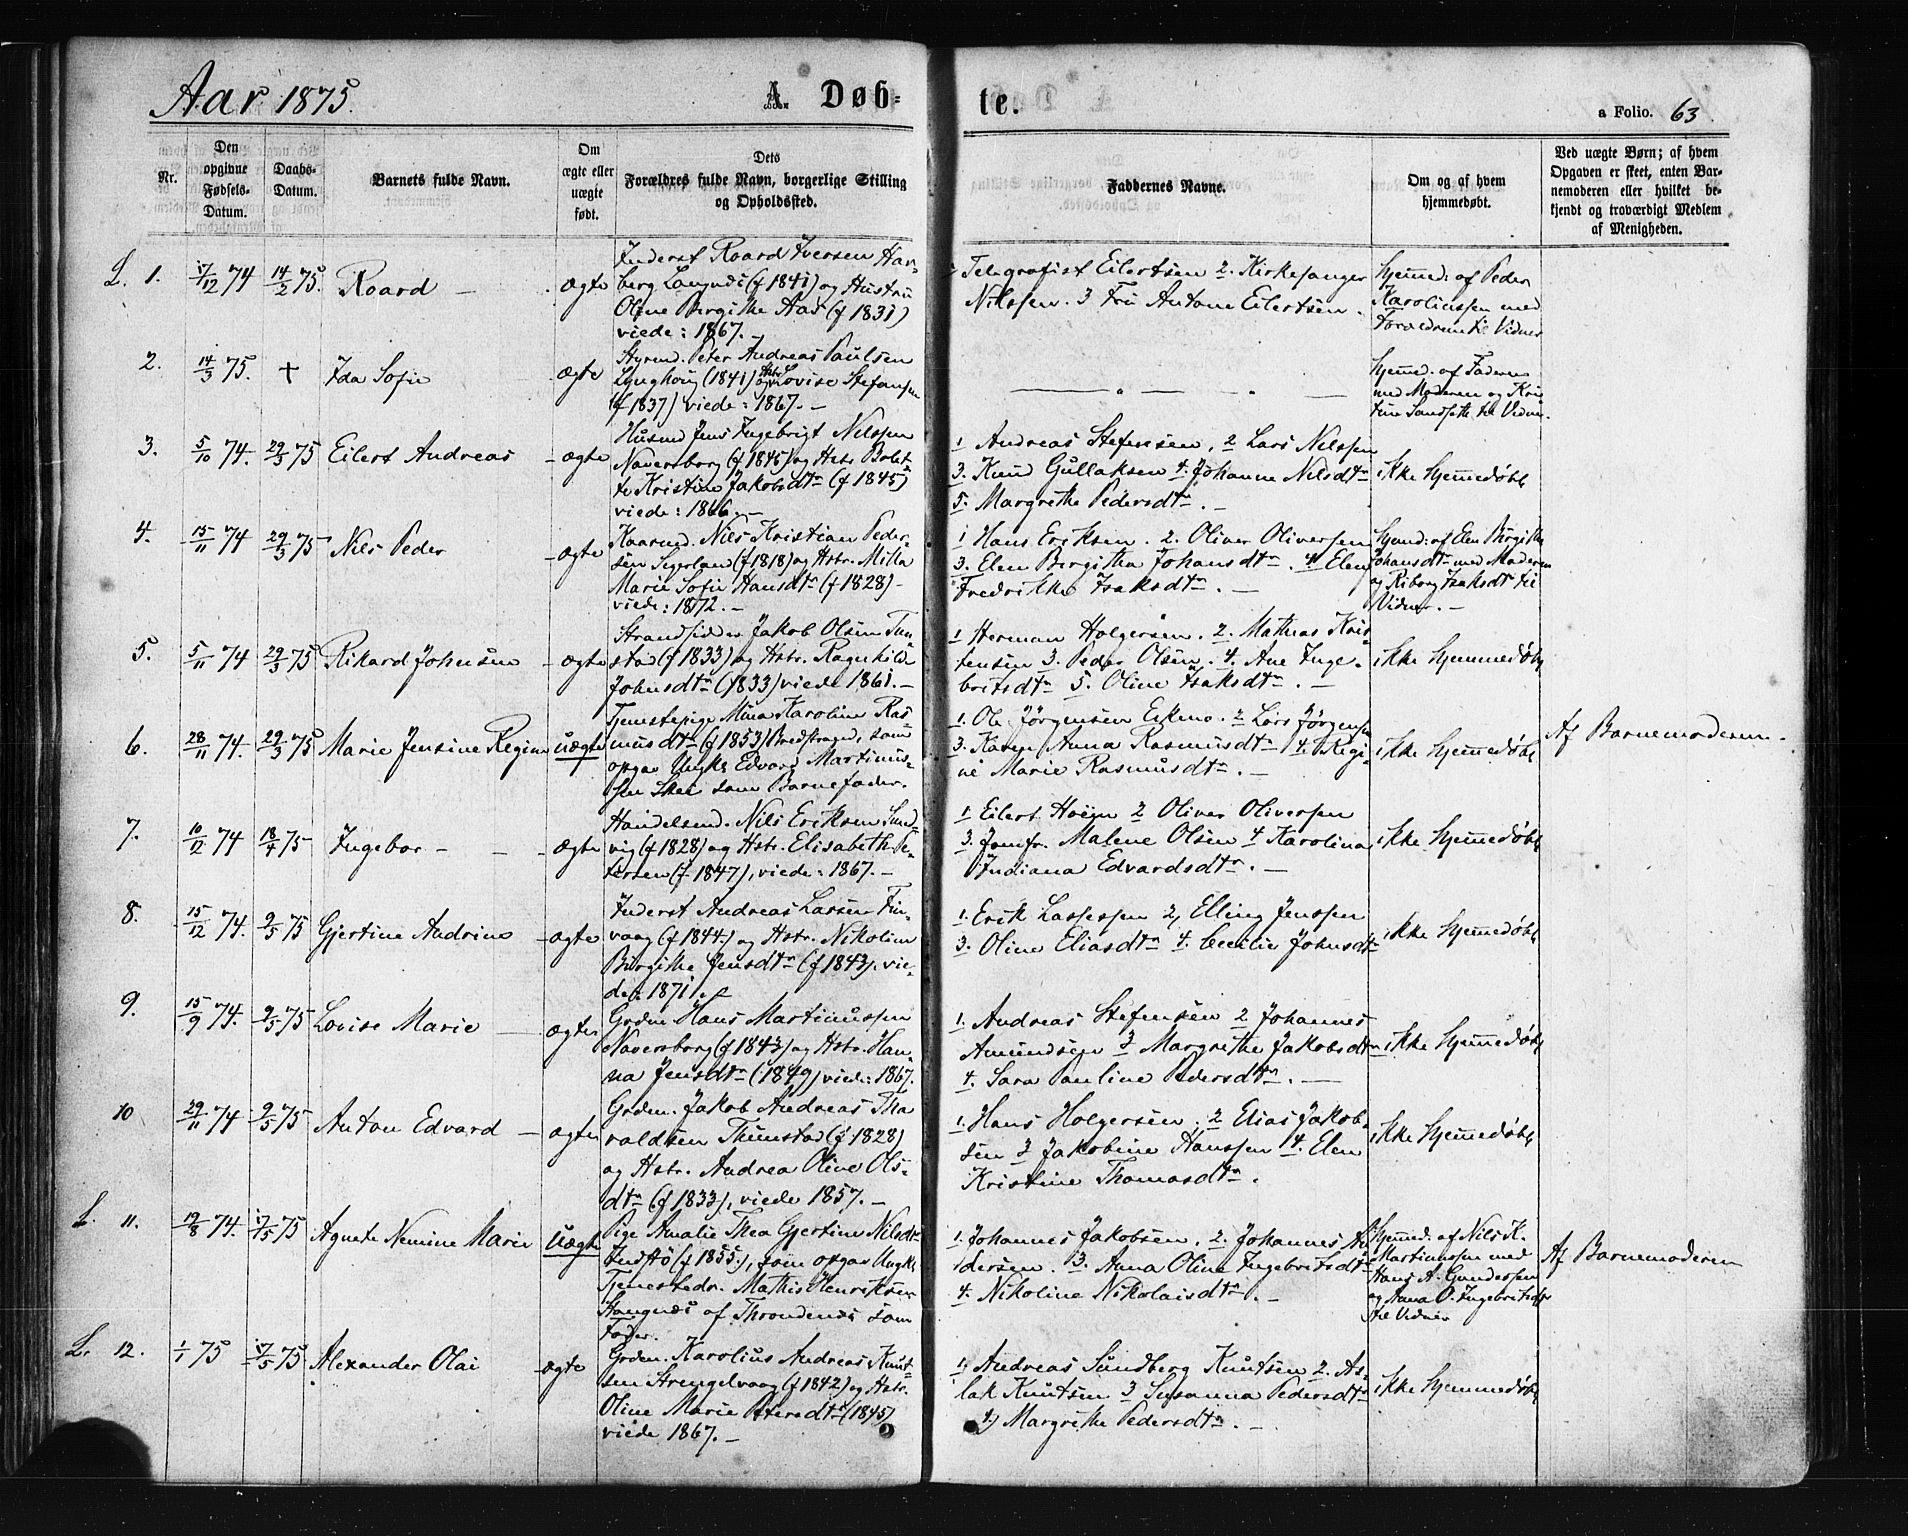 Aar 1875.
A. Døb-
te.
a Folio. 63.
Nr.
Den opgivne Fødsels-Datum.
Daabs-Datum.
Barnets fulde Navn.
Om ægte eller uægte født.
Dets Forældres fulde Navn, borgerlige Stilling og Opholdssted.
Faddernes Navne.
Om og af hvem hjemmedøbt.
Ved uægte Børn; af hvem Opgaven er skeet, enten Barnemoderen eller hvilket bekjendt og troværdigt Medlem af Menigheden.
L. 1. 17/12 74 14/2 75. Roard - ægte
Inderst Roard Iversen Hav-
berg Langnes (f 1841) og Hustru
Oline Bergithe Aas (f 1831)
viede: 1867. -
Telegrafist Eilertsen 2. Kirkesanger
Nilssen. 3 Fru Antone Eilertsen.
Hjemmed. af Peder
Karoliussen med
Forældrene til Vidner
2. 14/3 75. + Ida Sofie ægte
Styrmd. Peter Andreas Paulsen
Lynghoug (1841) og Hstr. Lovise Stefansen
(f 1837) viede: 1867. -
Hjemmed. af Faderen
med Moderen og Kris
tine Sandseth til Vidner.
3. 5/10 74. 29/3 75 Eilert Andreas - ægte
Husmd Jens Ingebrigt Nilssen
Naversborg (f 1845) og Hstr. Bolet-
te Kristine Jakobsdtn (f 1845)
viede: 1866. -
1 Andreas Stefensen, 2 Lars Nilssen
3. Knud Gullaksen 4. Johanne Nilsdtn
5. Margrethe Pedersdtn. -
ikke hjemmedøbt
4. 15/11 74 29/3 75 Nils Peder - ægte
Kaarmd. Nils Kristian Peder-
sen Segerland (f 1818) og Hstr. Milla
Marie Sofie Hansdtn (f 1828) -
viede: 1872. -
1 Hans Eriksen. 2. Oliver Oliversen
3. Elen Bergitha Johansdtn. 4 Elen
Fredrikke Isaksdtn. -
Hjemmd. af Elen Birgitha
Johansdtn med Moderen
og Riborg Isaksdt til
Vidner. -
5. 5/11 74 29/3 75 Rikard Johensen - ægte
Strandsidder Jakob Olsen Tun-
stad (f 1833) og Hstr. Ragnhild
Johnsdtn (1833) viede 1861. -
1 Herman Holgersen. 2. Mathias Kris-
tensen 3. Peder Olsen. 4. Ane Inge-
britsdtn 5. Oline Isaksdtn. -
ikke hjemmedøbt
6. 28/11 74. 29/3 75 Marie Jensine Regine uægte
Tjenstepige Mina Karoline Ras-
musdtn (f 1853) Bredstrand, som
opgav Ungk. Edvard Martinus-
sen Skei som Barnefader.
1. Ole Jørgensen Eskemo. 2 Lars Jørgensen
3. Karen Anna Rasmusdtn 4. Regi-
ne Marie Rasmusdtn. -
ikke hjemmedøbt
Af Barnemoderen -
7. 10/12 74 18/4 75 Ingebor - - - ægte
Handelsmd. Nils Eriksen Sund-
vig (f 1828) og Hstr. Elisabeth Pe-
tersen (f 1847), viede: 1867. -
1. Eilert Høegn 2 Oliver Oliversen
3. Jomfr. Malene Olsen 4 Karolina
Indiana Edvardsdtn. -
ikke hjemmedøbt
8. 15/12 74. 9/5 75 Gjertine Andrine - ægte
Inderst Andreas Larsen Fin-
vaag (f 1844.) og Hstr. Nikoline
Birgithe Jensdtn (f 1843). vie-
de: 1871.
1. Erik Lassessen 2, Elling Jenssen
3. Oline Eliasdtn 4. Cecilie Johnsdtn
ikke hjemmedøbt
9. 15/9 74. 9/5 75 Lovise Marie - ægte
Grdm. Hans Martinussen
Naversborg (f 1843) og Hstr. Han-
na Jensdtn (1849) viede: 1867.
1. Andreas Stefensen 2 Johannes
Amundsen 3 Margrethe Jakobsdtn
4. Sara Pauline Pedersdtn. -
ikke hjemmedøbt
10 29/11 74 9/5 75 Anton Edvard - ægte
Grdm. Jakob Andreas Tha
raldsen Thunstad (f 1828)
og Hstr. Andrea Olive Ols-
dtn (f 1833), viede 1857. -
1. Hans Holgersen. 2 Elias Jakob-
sen 3 Jakobine Hanssen 4. Elen
Kristine Thomasdtn.
ikke hjemmedøbt
L. 11. 19/8 74. 17/5 75 Agnete Nemine Marie Uægte
Pige Amalie Thea Gjertine Nilsdtn
Indstø (f 1855.), som opgav Ungk.
Tjenestedr. Mathis Henriksen
Stangnes af Throndenes som
Fader.
1. Johannes Jakobsen. 2. Johannes An
dersen. 3. Anna Oline Ingebritsdtn
4. Nikoline Nikolaisdtn. -
Hjemmd. af Nils K.
Martinussen med
Hans A. Gundersen
og Anna O. Ingebritsdtr
til Vidner
Af Barnemoderen
L. 12. 1/1 75 17/5 75 Alexander Olai ægte
Grdm. Karolius Andreas Knut-
sen Strengelvaag (f 1842) og Hstr.
Oline Marie Petersdtn (1845)
viede 1867. -
1, Andreas Sundberg Knutsen 2. As-
lak Knutsen 3 Susanna Pedersdtn
4) Margrethe Pedersdtn. -
ikke hjemmedøbt